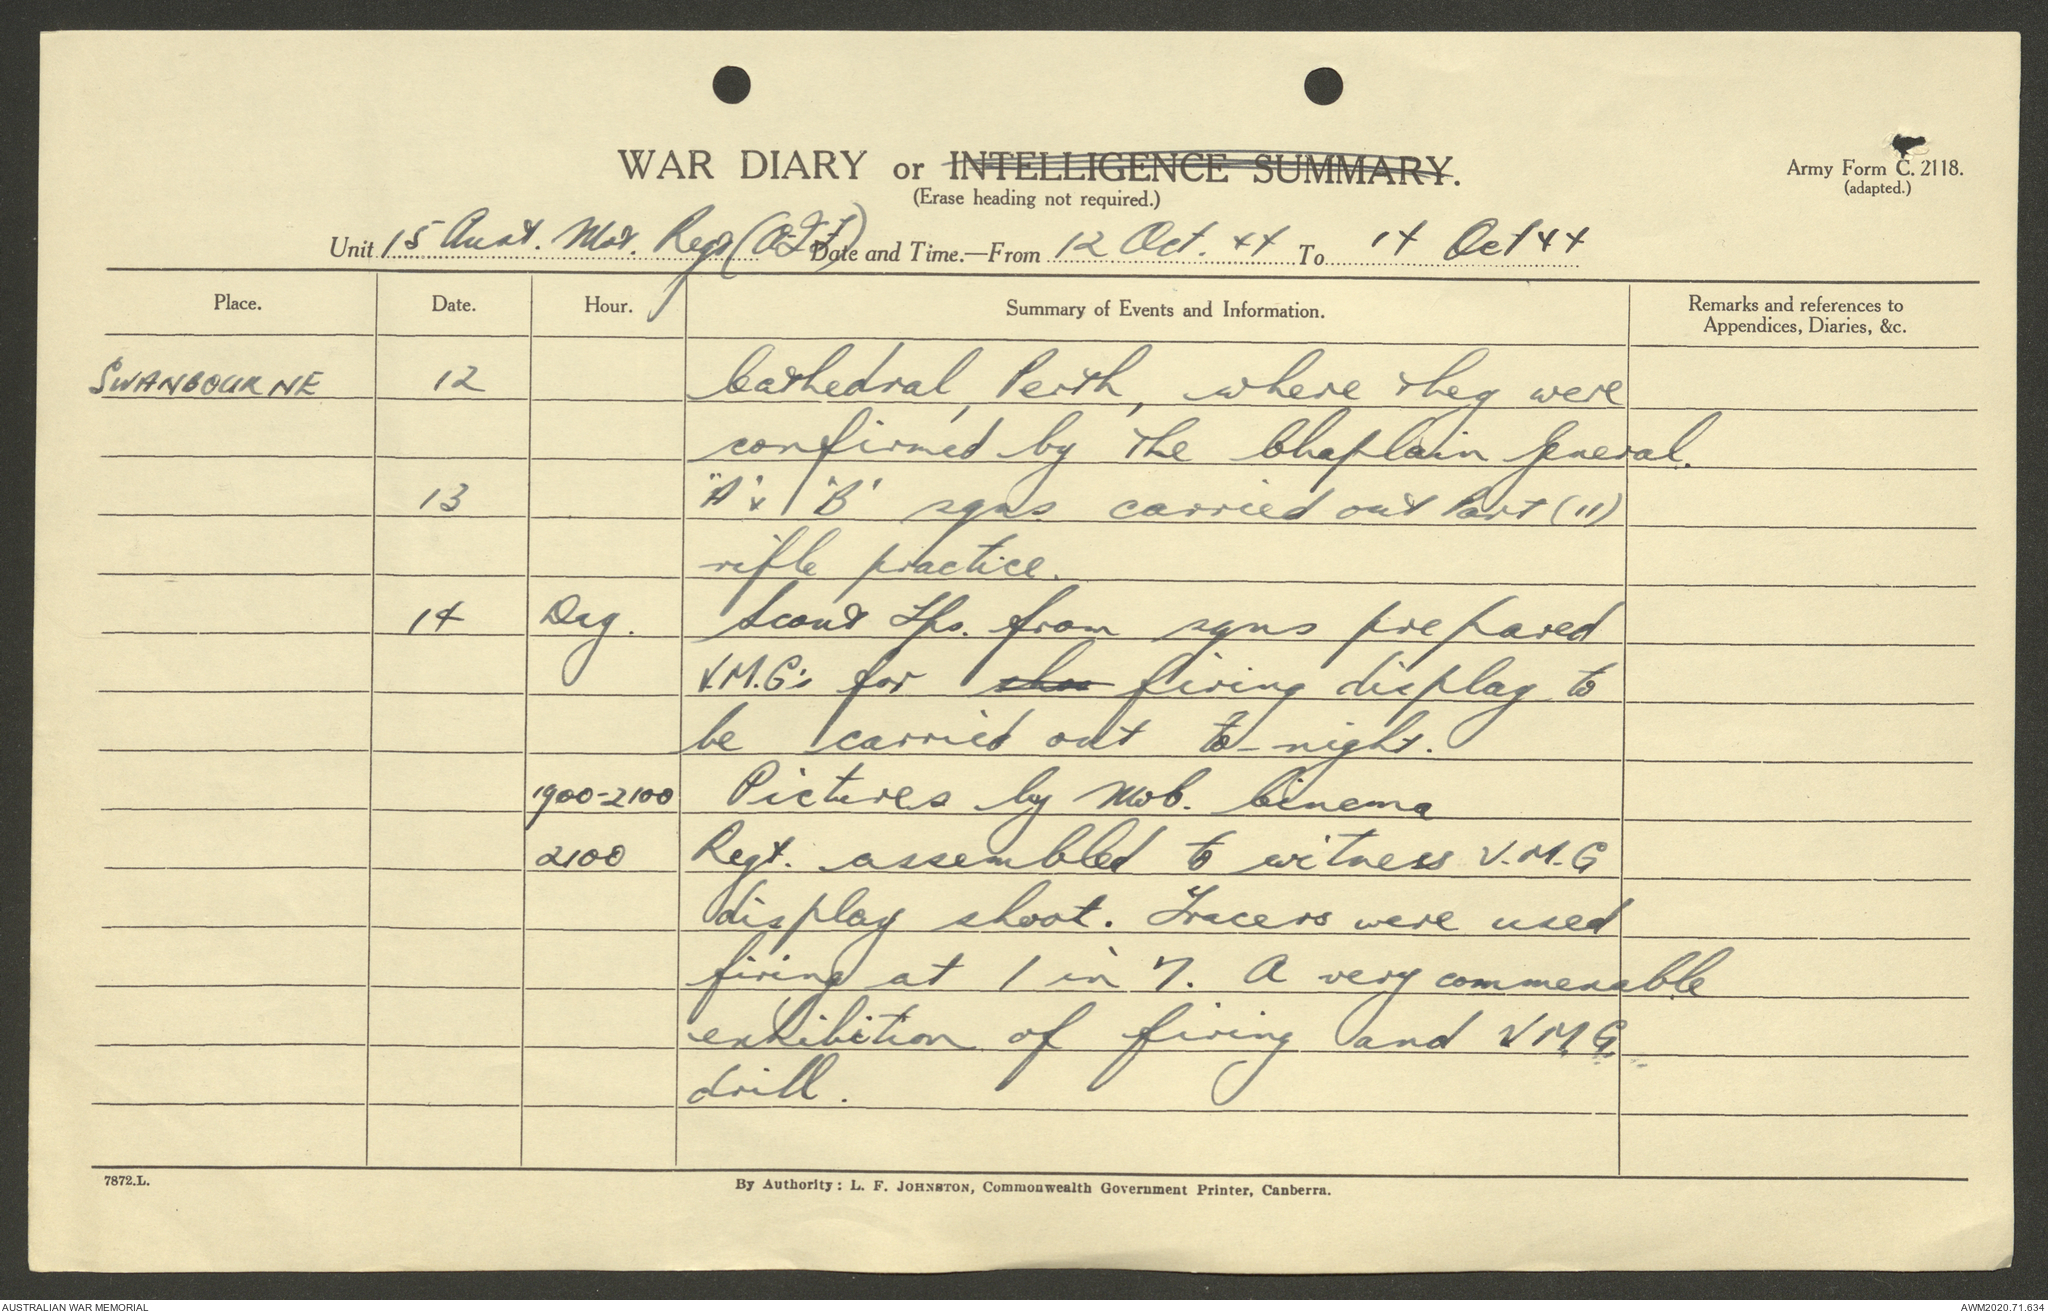 WAR DIARY or INTELLIGENCE SUMMARY.
(Erase heading not required.)
Army Form C. 2118.
(adapted.)
Unit 15 Aust. Mot. Regt (AIF) Date and Time.—From 12 Oct. 44 To 14 Oct 44
Place. Date. Hour. Summary of Events and Information. Remarks and references to
Appendices, Diaries, &c.
SWANBOURNE 12 Cathedral, Perth, where they were
confirmed by the Chaplain General.
13 "A" & 'B' sqns carried out Part (11)
rifle practice.
14 Day. Scout Tps. from sqns prepared
V.M.G's for shoo firing display to
be carried out to-night.
1900-2100 Pictures by Mob. Cinema
2100 Regt. assembled to witness V.M.G
display shoot. Tracers were used
firing at 1 in 7. A very commenable
exhibition of firing and V.M.G.
drill.
7872.L.
By Authority: L. F. JOHNSTON, Commonwealth Government Printer, Canberra.
AUSTRALIAN WAR MEMORIAL
AWM2020.71.634